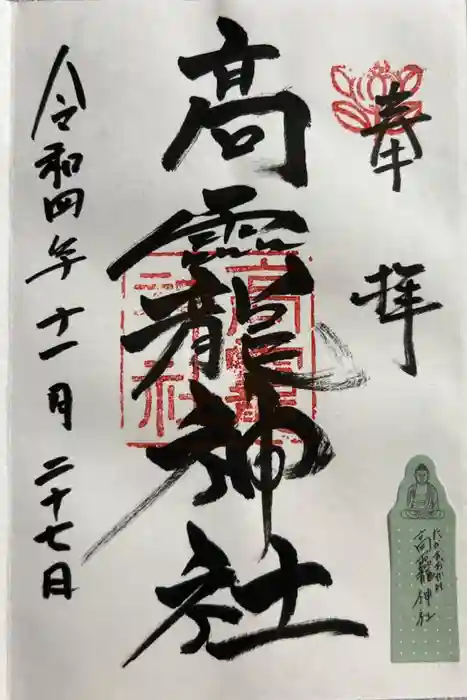 奉拝
高龗神社
高龗神社
令和四年十一月二十七日
たかおかみ
高龗神社